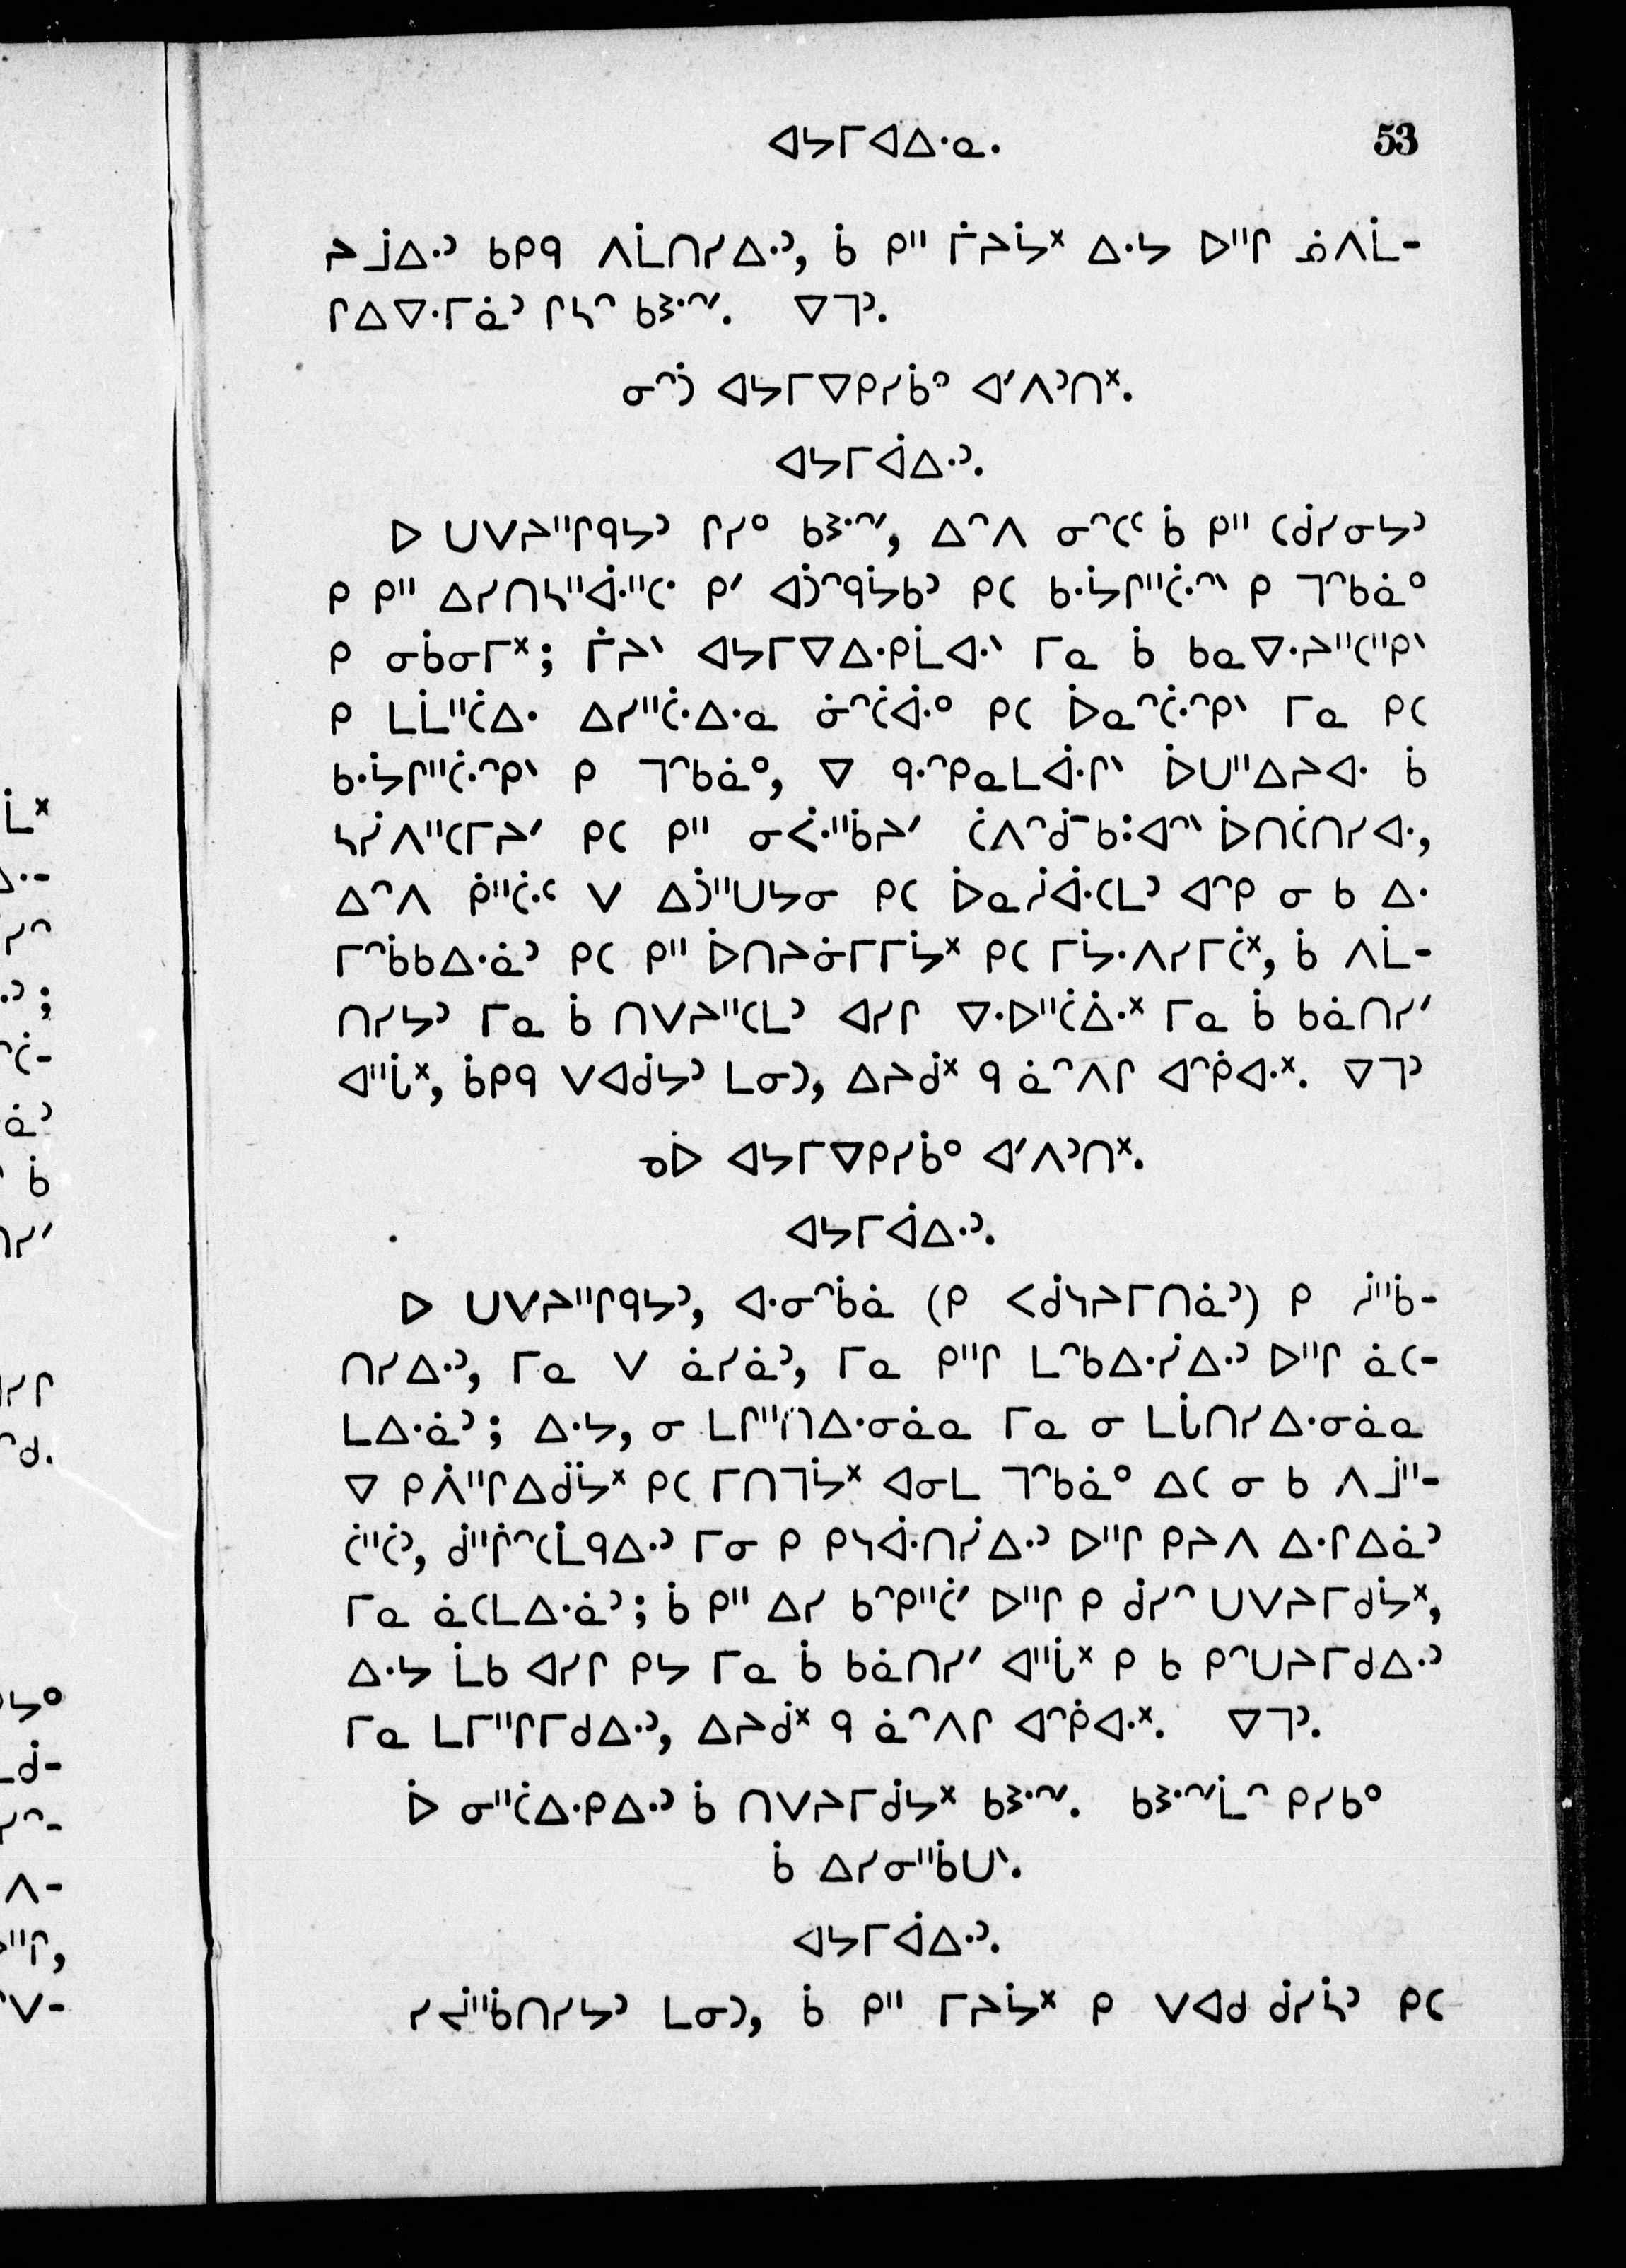 ᐊᔭᒥᐊᐃᐧᓇ. 53
ᔨᒨᐃᐧᐣ ᑲᑭᑫ ᐱᒫᑎᓯᐃᐧᐣ, ᑳ ᑭᐦ ᒦᔨᔮᕽ ᐃᐧᔭ ᐅᐦᒋ ᓅᐱᒫ-
ᒋᐃᐁᐧᒥᓈᐣ ᒋᓴᐢ ᑲᕒᐧᐢᐟ. ᐁᒣᐣ.
ᓂᐢᑑ ᐊᔭᒥᐁᑭᓯᑳᐤ ᐊᐟᐱᐣᑎᕽ.
ᐊᔭᒥᐋᐃᐧᐣ.
ᐅ ᑌᐯᔨᐦᒋᑫᔭᐣ ᒋᓯᐤ ᑲᕒᐧᐢᐟ, ᐃᐢᐱ ᓂᐢᑕᑦ ᑳ ᑭᐦ ᑕᑰᓯᓂᔭᐣ
ᑭ ᑭᐦ ᐃᓯᑎᓴᐦᐋᐧᐦᑕᐧ ᑭᐟ ᐊᑑᐢᑫᔮᑲᐣ ᑭᑕ ᑲᐧᔮᒋᐦᑖᐧᐢᐠ ᑭ ᒣᐢᑲᓈᐤ
ᑭ ᓂᑳᓂᒥᕽ; ᒦᔨᐠ ᐊᔭᒥᐁᐃᐧᑭᒫᐊᐧᐠ ᒥᓇ ᑳ ᑲᓇᐁᐧᔨᐦᑕᐦᑭᐠ
ᑭ ᒪᒫᐦᑖᐃᐧ ᐃᓯᐦᑖᐧᐃᐧᓇ ᓃᐢᑖᐋᐧᐤ ᑭᑕ ᐆᓇᐢᑖᐧᐢᑭᐠ ᒥᓇ ᑭᑕ
ᑲᐧᔮᒋᐦᑖᐧᐢᑭᐠ ᑭ ᒣᐢᑲᓈᐤ, ᐁ ᑫᐧᐢᑭᓇᒪᐋᐧᒋᐠ ᐆᑌᐦᐃᔨᐊᐧ ᑳ
ᓴᓰᐱᐦᑕᒥᔨᐟ ᑭᑕ ᑭᐦ ᓂᐹᐧᐦᑳᔨᐟ ᑖᐱᐢᑰᐨ ᑲᐊᐢᐠ ᐆᑎᑖᑎᓯᐊᐧ,
ᐃᐢᐱ ᑮᐦᑖᐧᑦ ᐯ ᐃᑑᐦᑌᔭᓂ ᑭᑕ ᐆᓇᓲᐋᐧᑕᒪᐣ ᐊᐢᑭ ᓂ ᑲ ᐃᐧ
ᒥᐢᑳᑲᐃᐧᓈᐣ ᑭᑕ ᑭᐦ ᐆᑎᔨᓃᒥᒥᔮᕽ ᑭᑕ ᒥᔮᐧᐱᓯᒥᑖᕽ, ᑳ ᐱᒫ-
ᑎᓯᔭᐣ ᒥᓇ ᑳ ᑎᐯᔨᐦᑕᒪᐣ ᐊᓯᒋ ᐁᐧᐅᐦᑖᐄᐧᕽ ᒥᓇ ᑳ ᑲᓈᑎᓯᐟ
ᐊᐦᒑᕽ, ᑳᑭᑫ ᐯᐊᑰᔭᐣ ᒪᓂᑐ, ᐃᔨᑰᕽ ᑫ ᓈᐢᐱᒋ ᐊᐢᑮᐊᐧᕽ. ᐁᒣᐣ
ᓀᐆ ᐊᔭᒥᐁᑭᓯᑳᐤ ᐊᐟᐱᐣᑎᕽ.
ᐊᔭᒥᐋᐃᐧᐣ.
ᐅ ᑌᐯᔨᐦᒋᑫᔭᐣ, ᐊᐧᓂᐢᑳᓈ (ᑭ ᐸᑰᓴᔨᒥᑎᓈᐣ) ᑭ ᓲᐦᑳ-
ᑎᓯᐃᐧᐣ, ᒥᓇ ᐯ ᓈᓯᓈᐣ, ᒥᓇ ᑭᐦᒋ ᒪᐢᑲᐃᐧᓰᐃᐧᐣ ᐅᐦᒋ ᓈᑕ-
ᒪᐃᐧᓈᐣ; ᐃᐧᔭ, ᓂ ᒪᒋᐦᑎᐃᐧᓂᓈᓇ ᒥᓇ ᓂ ᒪᒑᑎᓯᐃᐧᓂᓈᓇ
ᐁ ᑭᐲᐦᒋᐃᑰᔮᕽ ᑭᑕ ᒥᑎᒣᔮᕽ ᐊᓂᒪ ᒣᐢᑲᓈᐤ ᐃᑕ ᓂ ᑲ ᐱᒨᐦ-
ᑖᐦᑖᐣ, ᑰᐦᒌᐢᑕᒫᑫᐃᐧᐣ ᒥᓂ ᑭ ᑭᓴᐋᐧᑎᓰᐃᐧᐣ ᐅᐦᒋ ᑭᔨᐱ ᐃᐧᒋᐃᓈᐣ
ᒥᓇ ᓈᑕᒪᐃᐧᓈᐣ; ᑳ ᑭᐦ ᐃᓯ ᑲᐢᑭᐦᑖᐟ ᐅᐦᒋ ᑭ ᑰᓯᐢ ᑌᐯᔨᒥᑯᔮᕽ,
ᐃᐧᔭ ᒫᑲ ᐊᓯᒋ ᑭᔭ ᒥᓇ ᑳ ᑲᓈᑎᓯᐟ ᐊᐦᒑᕽ ᑭ ᑲ ᑭᐢᑌᔨᒥᑯᐃᐧᐣ
ᒥᓇ ᒪᒥᐦᒋᒥᑯᐃᐧᐣ, ᐃᔨᑰᕽ ᑫ ᓈᐢᐱᒋ ᐊᐢᑮᐊᐧᕽ. ᐁᒣᐣ.
ᐆ ᓂᐦᑖᐃᐧᑭᐃᐧᐣ ᑳ ᑎᐯᔨᒥᑰᔭᕽ ᑲᕒᐧᐢᐟ. ᑲᕒᐧᐢᐟᒫᐢ ᑭᓯᑲᐤ
ᑳ ᐃᓯᓂᐦᑳᑌᐠ.
ᐊᔭᒥᐋᐃᐧᐣ.
ᓯᓲᐦᑳᑎᓯᔭᐣ ᒪᓂᑐ, ᑳ ᑭᐦ ᒥᔨᔮᕽ ᑭ ᐯᐊᑯ ᑰᓯᓵᐣ ᑭᑕ